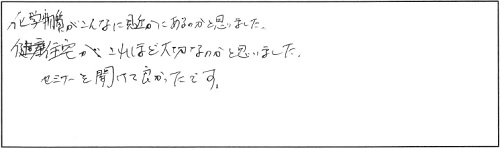 化学物質がこんなに身近にあるのかと思いました。
健康住宅が、これほど大切なのかと思いました。
セミナーを聞けて良かったです。